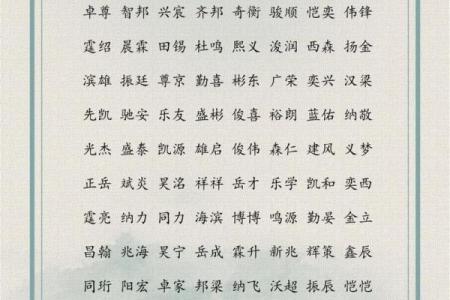 卓尊 智邦 兴宸 齐邦 奇衡 骏顺 恺奕 伟锋
霆绍 晨霖 田锡 杜鸣 熙义 浚润 西森 扬金
滨雄 振廷 尊京 勤喜 彬东 广荣 奕兴 汉梁
先凯 驰安 乐友 盛彬 俊喜 裕朗 蓝佑 纳敬
光杰 盛泰 凯源 雄启 俊伟 森仁 建风 义梦
正岳 斌炎 吴洺 祥祥 岳才 乐学 凯和 奕西
霆亮 纳力 同力 海滨 博博 鸣源 勤晏 金立
昌翰 兆海 吴宁 岳成 霖升 新兆 辉策 鑫辰
同珩 阳宏 卓家 邦梁 纳飞 沃超 振辰 恺恺